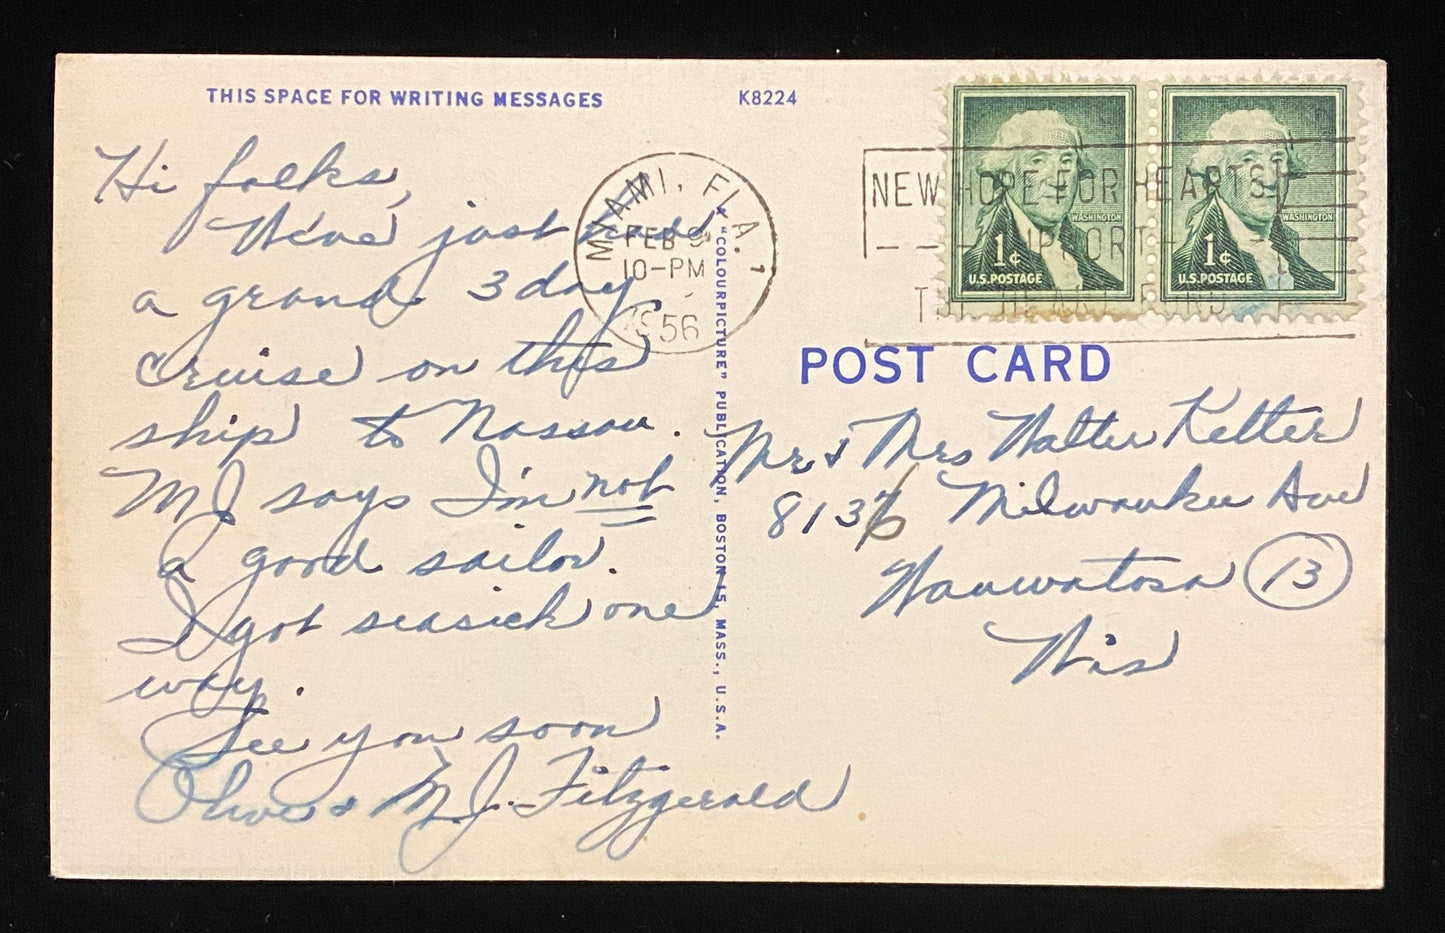 THIS SPACE FOR WRITING MESSAGES
K8224
Hi folks,
We've just had
a grand 3 day
cruise on this
ship to Nassau.
MJ says I'm not
a good sailor.
I got seasick one
way.
See you soon
Olive & M.J. Fitzgerald
MIAMI, FLA. 1
FEB 9
10-PM
1956
"COLOURPICTURE" PUBLICATION, BOSTON 15, MASS., U.S.A.
NEW HOPE FOR HEARTS
SUPPORT
THE HEART FUND
WASHINGTON
1¢
U.S. POSTAGE
WASHINGTON
1¢
U.S. POSTAGE
POST CARD
Mr & Mrs Walter Ketter
8136 Milwaukee Ave
Wauwatosa 13
Wis